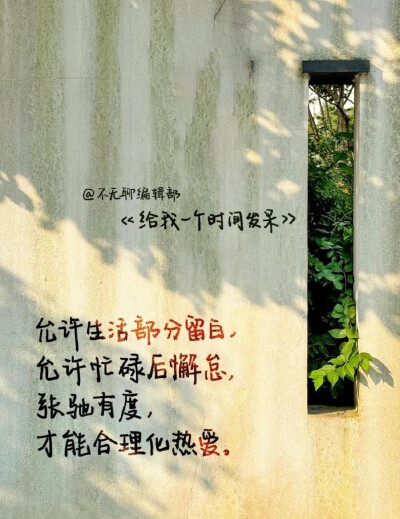 @不无聊编辑部
《给我一个时间发呆》
允许生活部分留白,
允许忙碌后懈怠,
张驰有度,
才能合理化热爱。